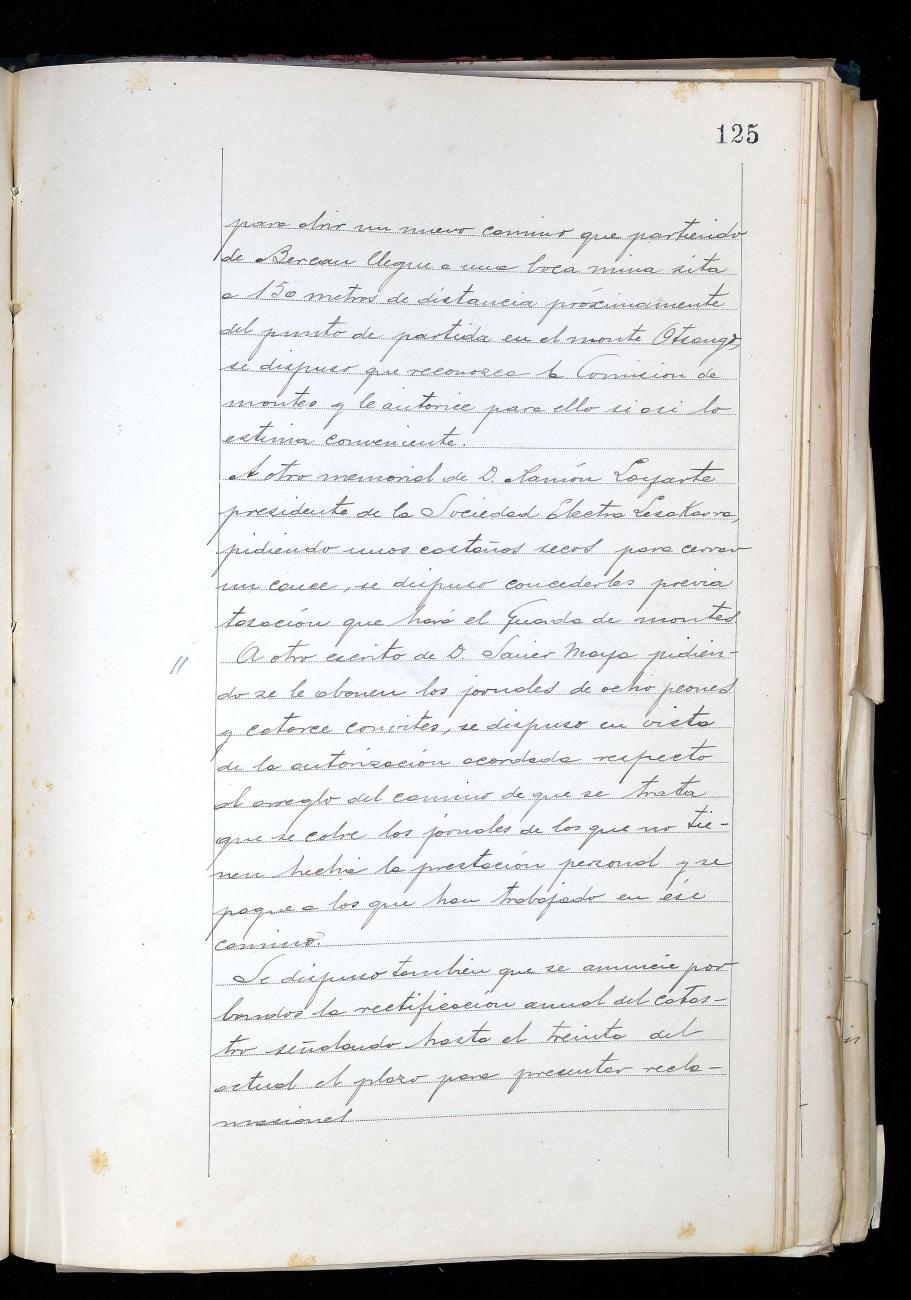 125
para abrir un nuevo camino que partiendo
de Bereau llegue a una boca mina sita
a 150 metros de distancia próximamente
del punto de partida en el monte Otsango,
se dispuso que reconozca la Comision de
montes y le autorice para ello si asi lo
estima conveniente.
A otro memorial de D. Ramón Loyarte
presidente de la Sociedad Electra Lesakarra,
pidiendo unos castaños secos para cerrar
un cauce, se dispuso concederles previa
tasación que hará el Guarda de montes
A otro escrito de D. Javier Maya pidien-
do se le abonen los jornales de ocho peones
y catorce convites, se dispuso en vista
de la autorización acordada respecto
al arreglo del camino de que se trata
que se cobre los jornales de los que no tie-
nen hecha la prestación personal y se
pague a los que han trabajado en ése
camino.
Se dispuso tambien que se anuncie por
bandos la rectificación anual del catas-
tro señalando hasta el treinta del
actual el plazo para presentar recla-
maciones